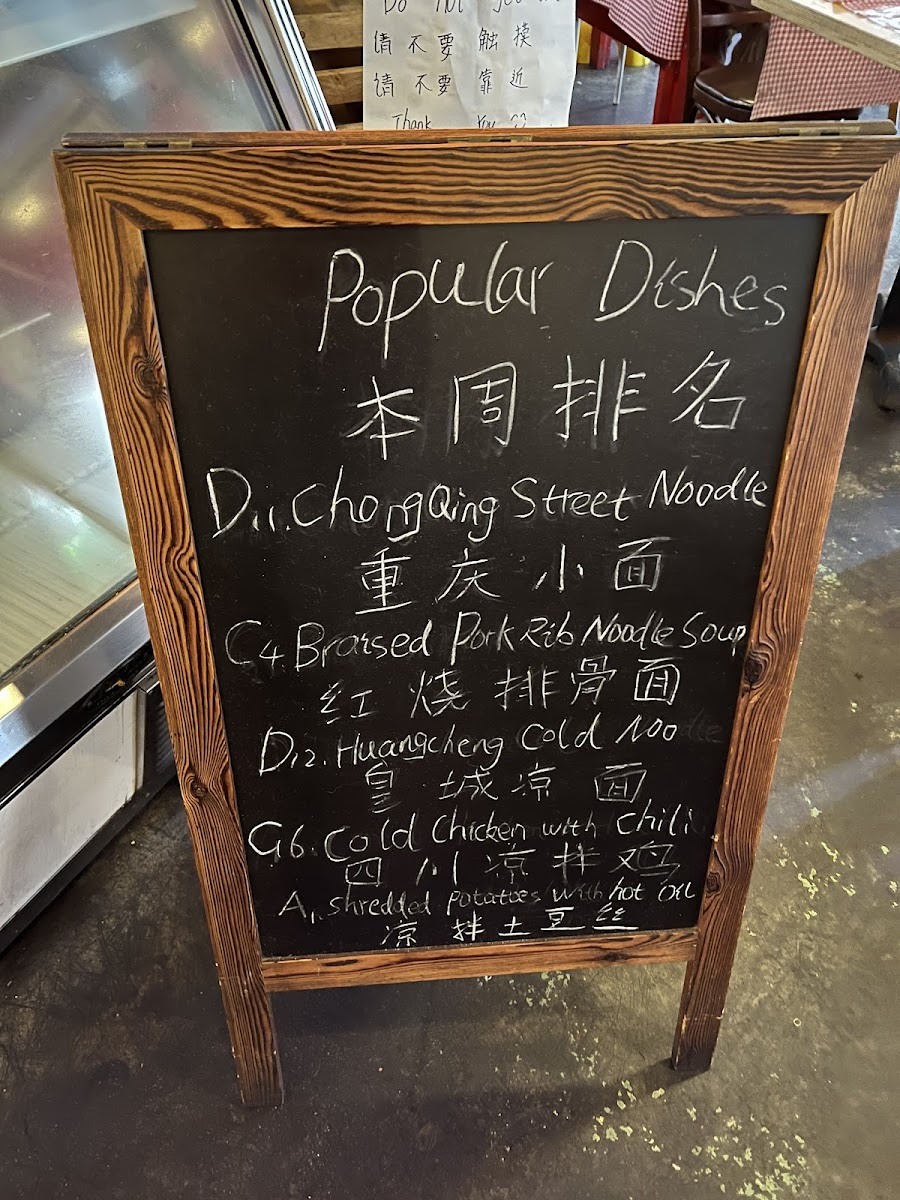 Do not
请不要触摸
请不要靠近
Thank You
Popular Dishes
本周排名
D11. ChongQing Street Noodle
重庆小面
C4. Braised Pork Rib Noodle Soup
红烧排骨面
D12. Huangcheng Cold Noodle
皇城凉面
G6. Cold Chicken with Chili
四川凉拌鸡
A1. Shredded potatoes with hot oil
凉拌土豆丝